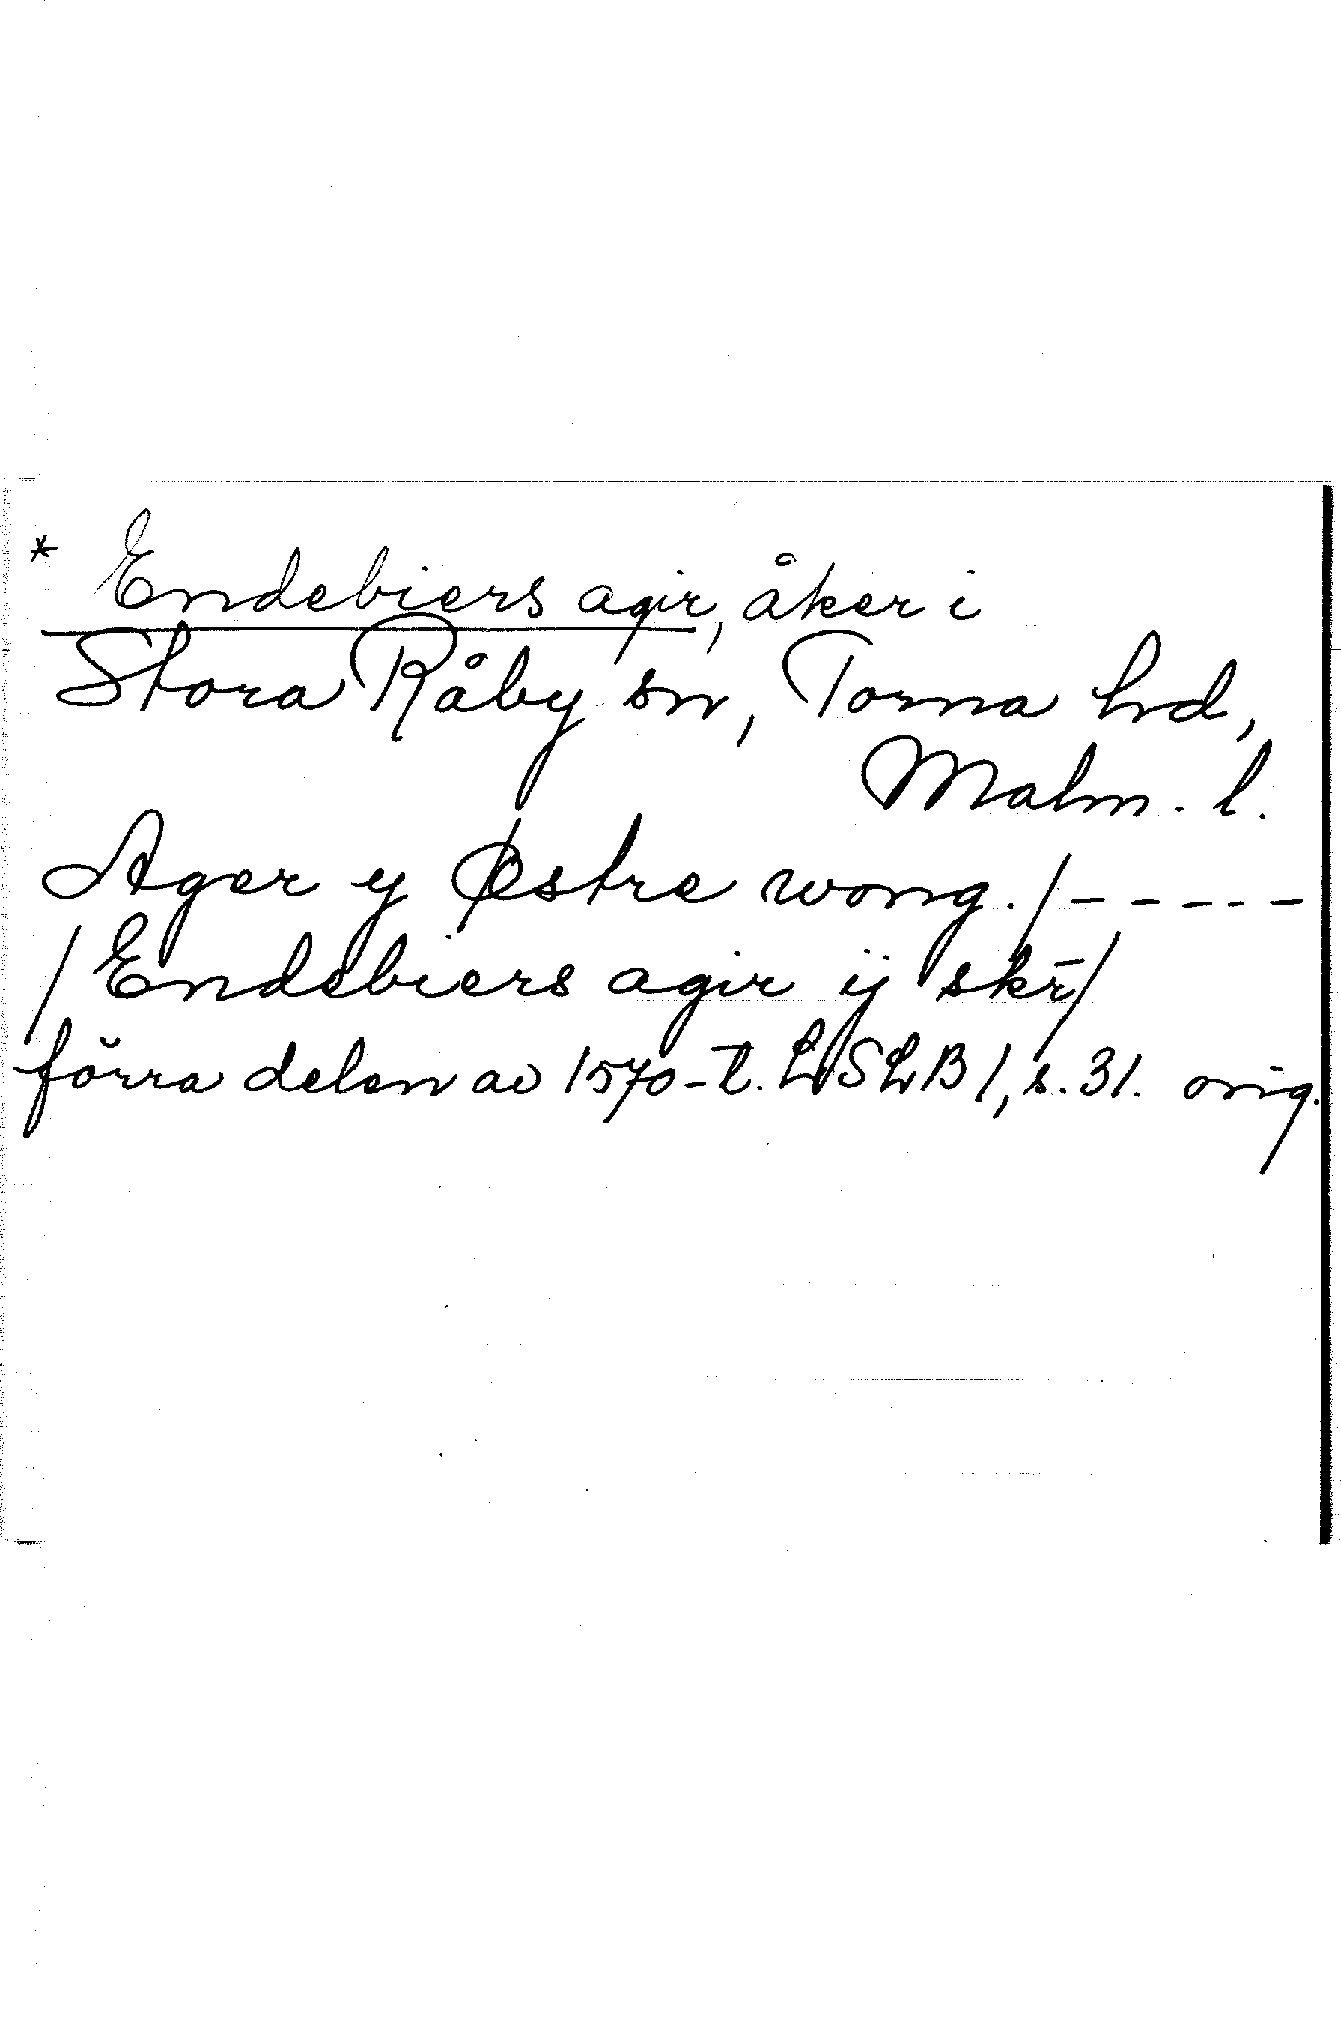 * Endebiers agir, åker i
Stora Råby sn, Torna hd,
Malm. l.
Ager y Østre wong. / - - - - -
/ Endebiers agir ij skr̄ /
förra delen av 1570-t. LSLB 1, s. 31. orig.